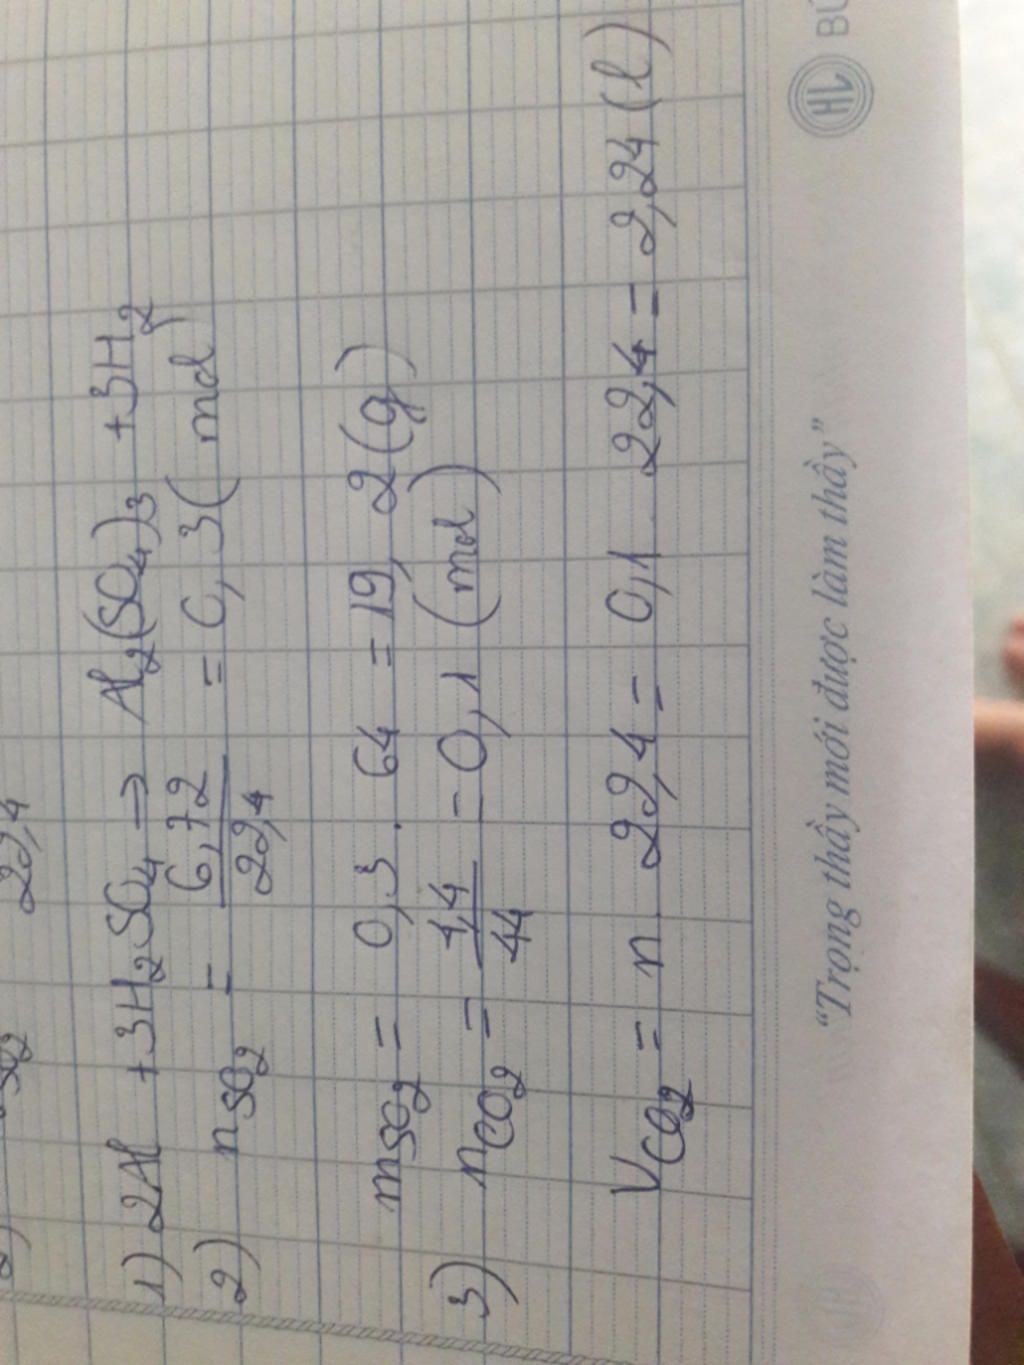 22,4
1) 2Al + 3H₂SO₄ → Al₂(SO₄)₃ + 3H₂
2) nSO₂ = 6,72/22,4 = 0,3 (mol)
mSO₂ = 0,3 . 64 = 19,2 (g)
3) nCO₂ = 4,4/44 = 0,1 (mol)
VCO₂ = n . 22,4 = 0,1 . 22,4 = 2,24 (l)
"Trọng thầy mới được làm thầy"
HL BÚ